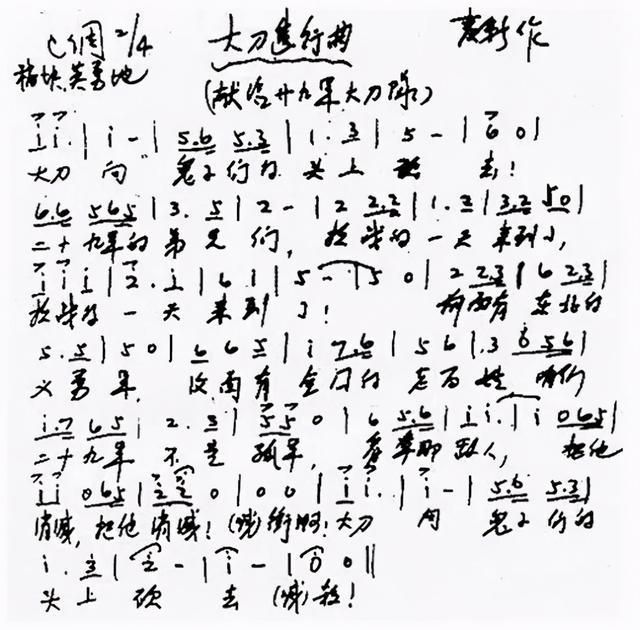 C调 2/4 大刀进行曲 麦新作
(献给廿九军大刀队)
i i. | i - | 5.6 5.3 | 1. 3 | 5 - | 6 0 |
大刀 向 鬼子们的 头上 去!
6.6 565 | 3. 5 | 2 - | 2 2.2 | 1. 2 | 3.2 50 |
二十九军的弟兄们, 抗战的一天来到了,
i i i | 2. i | 6 i | 5 - | 5 0 | 2 2.3 | 6 2.3 |
抗战的一天来到了! 前面有 东北的
5. 5 | 5 0 | 6 6 5 | i 7.6 | 5 6 | . 3 0 56 |
义勇军, 后面有 全国的 老百姓 咱们
i.7 65 | 2. 3 | 55 0 | 6 5.6 | i i. | i 065 |
二十九军 不是孤军, 看準那敌人, 把他
i i 065 | 2 2 0 | 0 0 | i i. | i - | 5.6 5.3 |
消灭, 把他消灭! (喊)衝啊! 大刀 向 鬼子们的
i. 3 | 2 - | i - | 0 0 ||
头上 砍 去 (喊)殺!